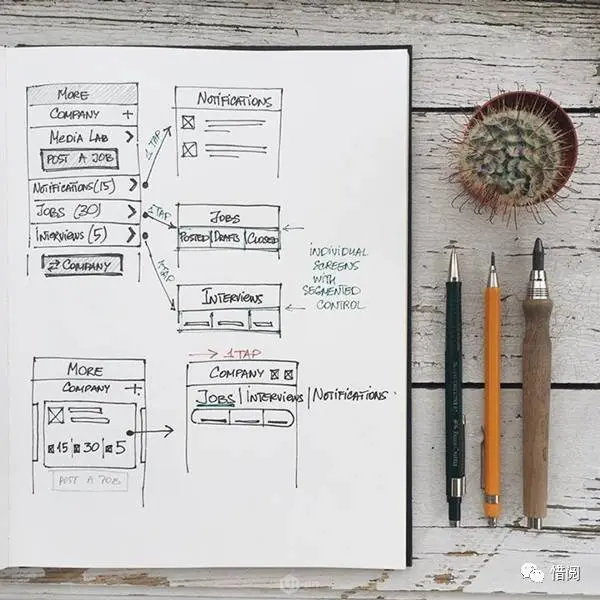 MORE
COMPANY +
MEDIA LAB
POST A JOB
NOTIFICATIONS (15)
JOBS (30)
INTERVIEWS (5)
COMPANY
1 TAP
1 TAP
1 TAP
NOTIFICATIONS
JOBS
POSTED | DRAFTS | CLOSED
INTERVIEWS
INDIVIDUAL
SCREENS
WITH
SEGMENTED
CONTROL
MORE
COMPANY +
15 | 30 | 5
POST A JOB
1 TAP
COMPANY
JOBS | INTERVIEWS | NOTIFICATIONS
惜阅